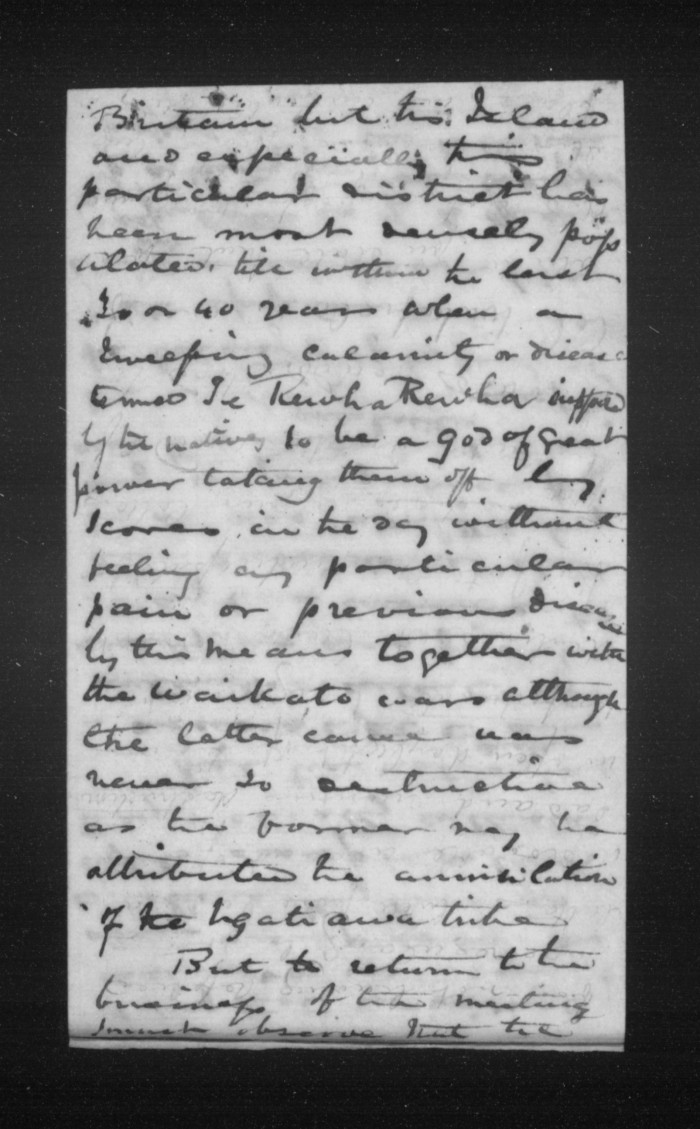 Britain but this Island
and especially this
particular district has
been most densely pop
ulated. till within the last
30 or 40 years when a
sweeping calamity or disease
termed Te Rewha Rewha suppos
by the natives to be a god of great
power taking them off by
scores in the day without
feeling any particular
pain or previous disease
by this means together with
the Waikato wars although
the latter cause was
never so destructive
as the former may be
attributed the annihilation
of the Ngatiawa tribe
But to return to the
business of the meeting
I must observe that the